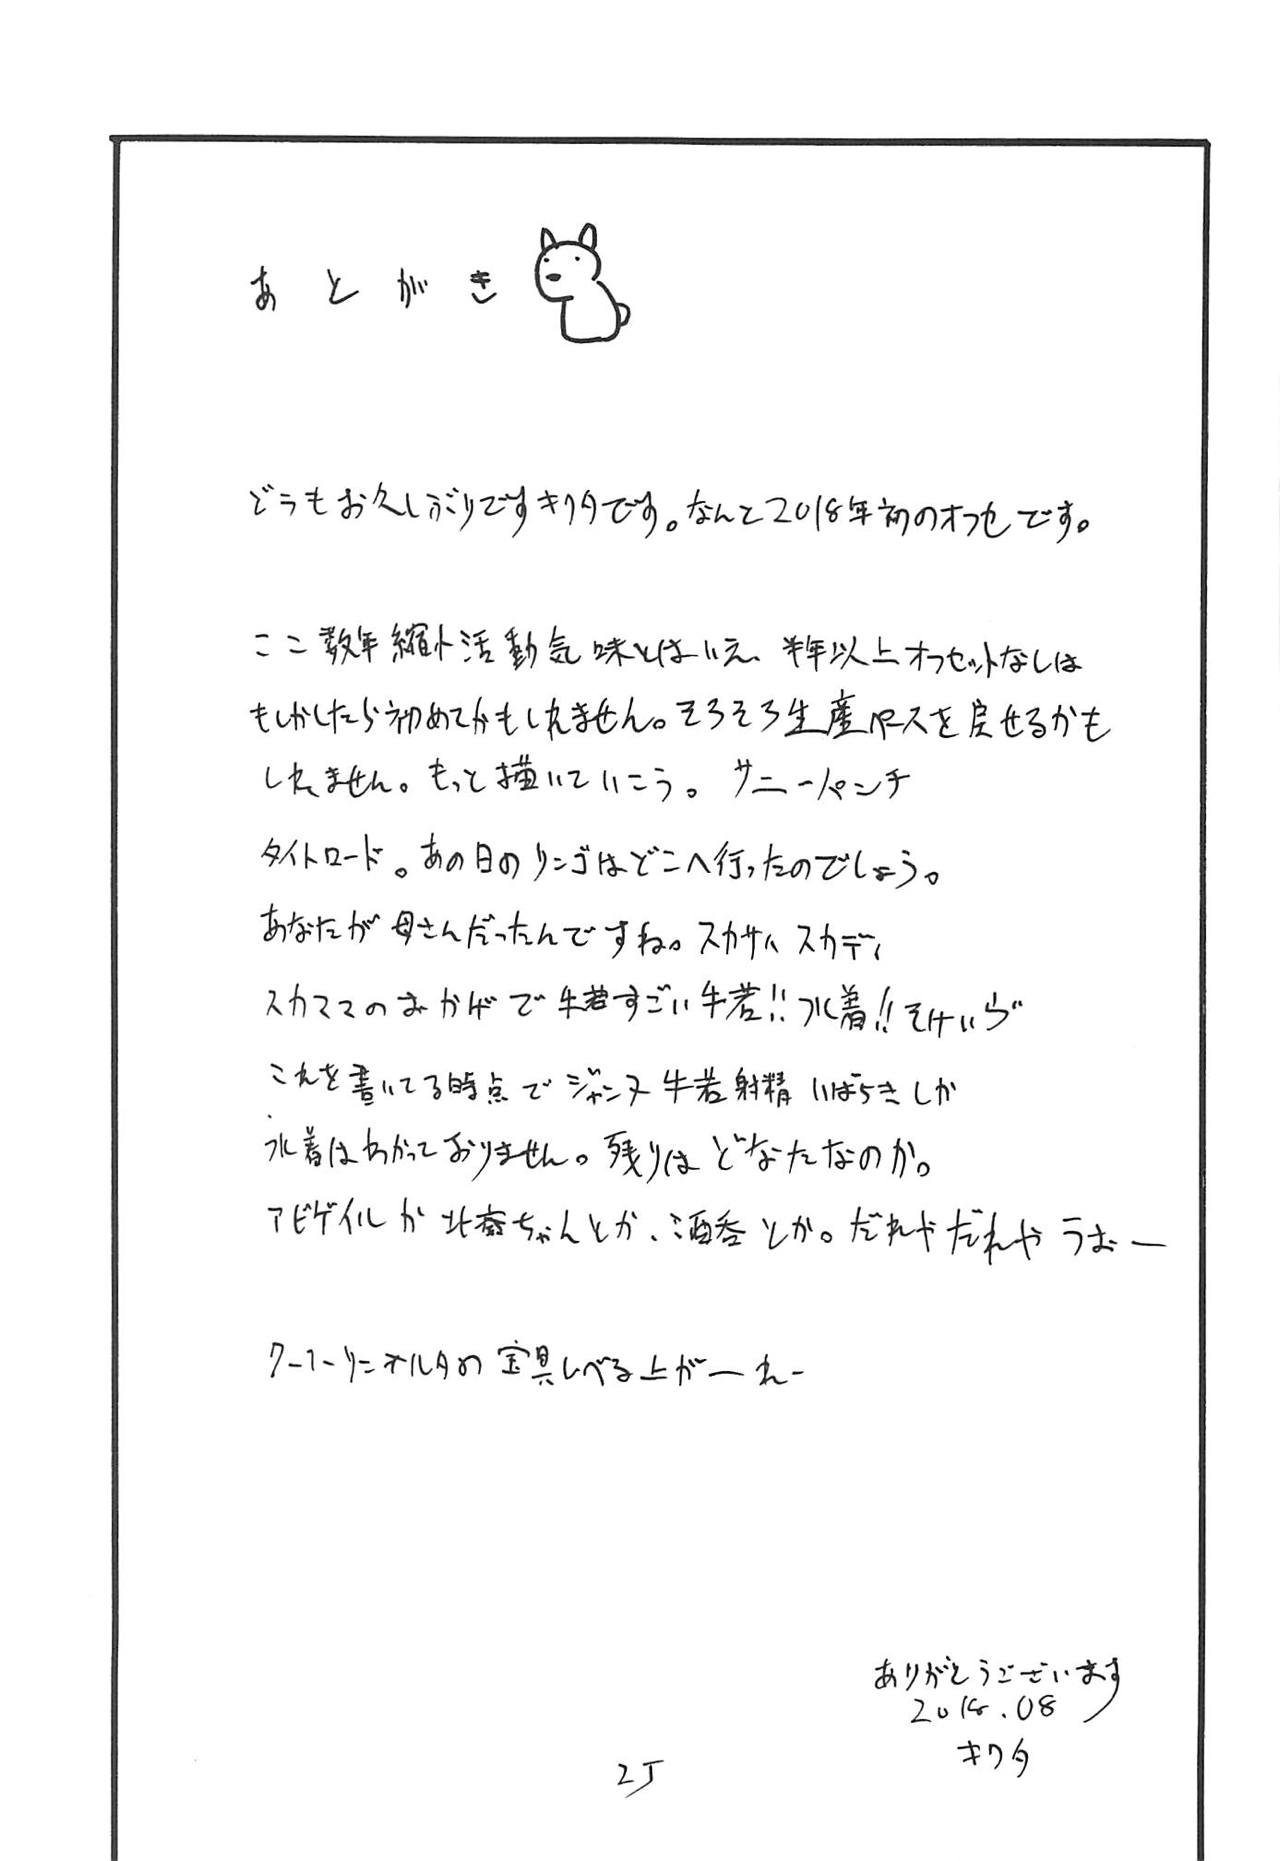 あとがき
どうもお久しぶりですキクタです。なんと2018年初のオフセです。
ここ数年縮小活動気味とはいえ、半年以上オフセットなしは
もしかしたら初めてかもしれません。そろそろ生産ペースを戻せるかも
しれません。もっと描いていこう。サニーパンチ
タイトロード。あの日のリンゴはどこへ行ったのでしょう。
あなたが母さんだったんですね。スカサハ スカディ
スカママのおかげで牛若すごい牛若!!水着!!
これを書いてる時点でジャンヌ 牛若 射精 いばらきしか
水着はわかっておりません。残りはどなたなのか。
アビゲイルか北斎ちゃんとか、酒呑とか。だれやだれや うおー
クーフーリンオルタの宝具レベる上がーれー
ありがとうございます
2018.08
キクタ
25